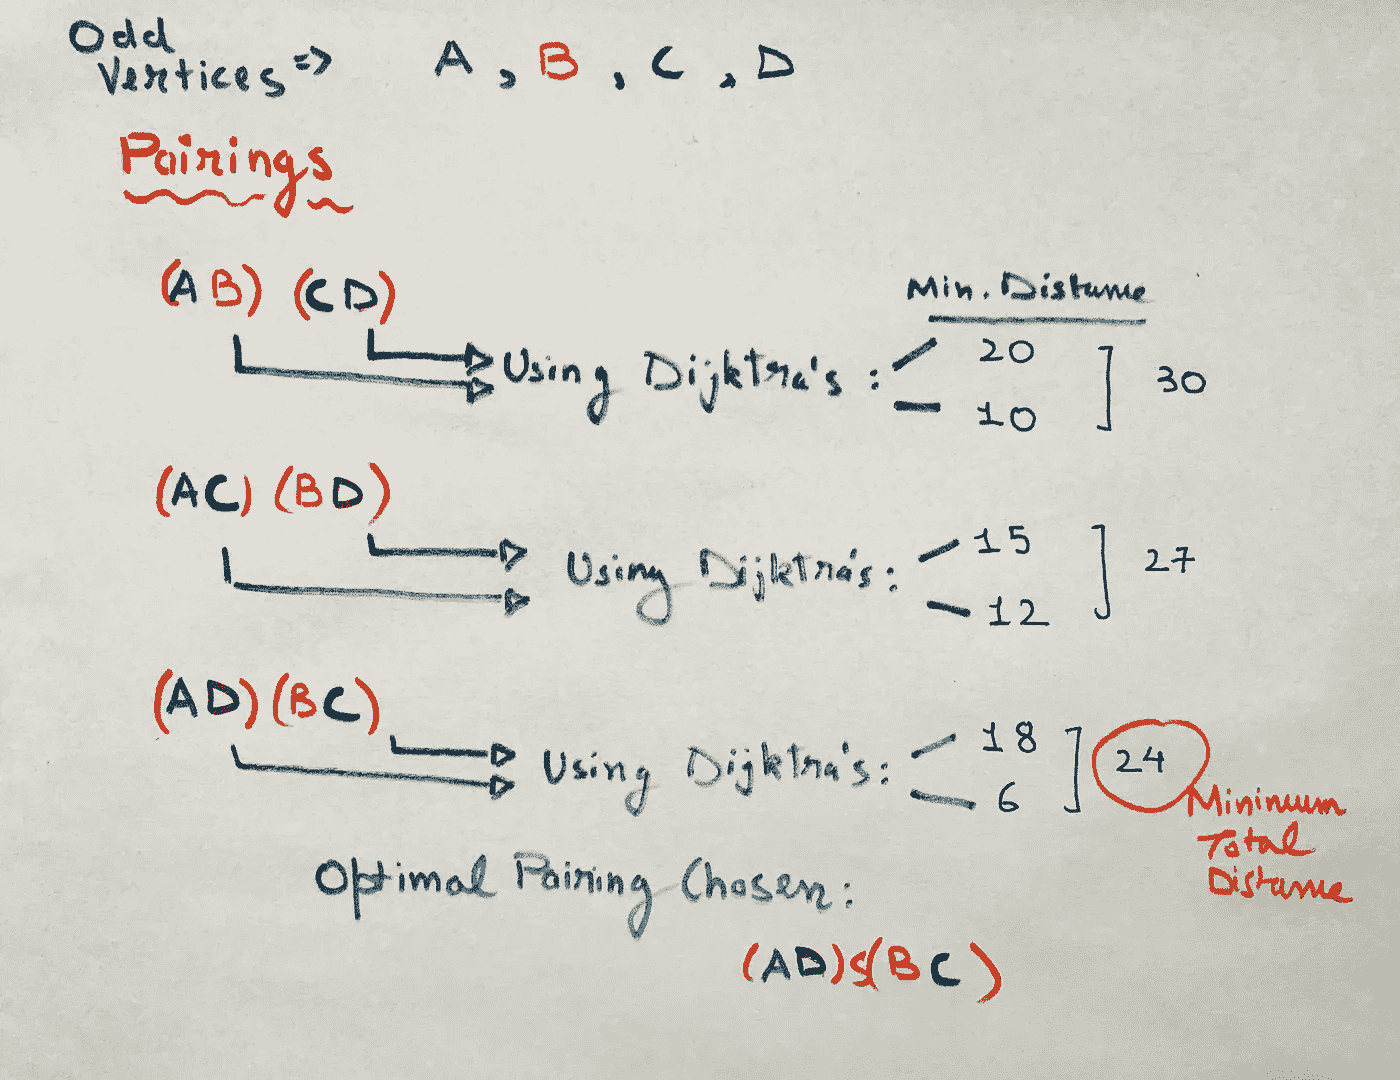 Odd
Vertices => A , B , C , D
Pairings
(AB) (CD)
Min. Distance
Using Dijktra's : 20
10
30
(AC) (BD)
Using Dijktra's : 15
12
27
(AD) (BC)
Using Dijktra's : 18
6
24
Minimum
Total
Distance
Optimal Pairing Chosen :
(AD) & (BC)